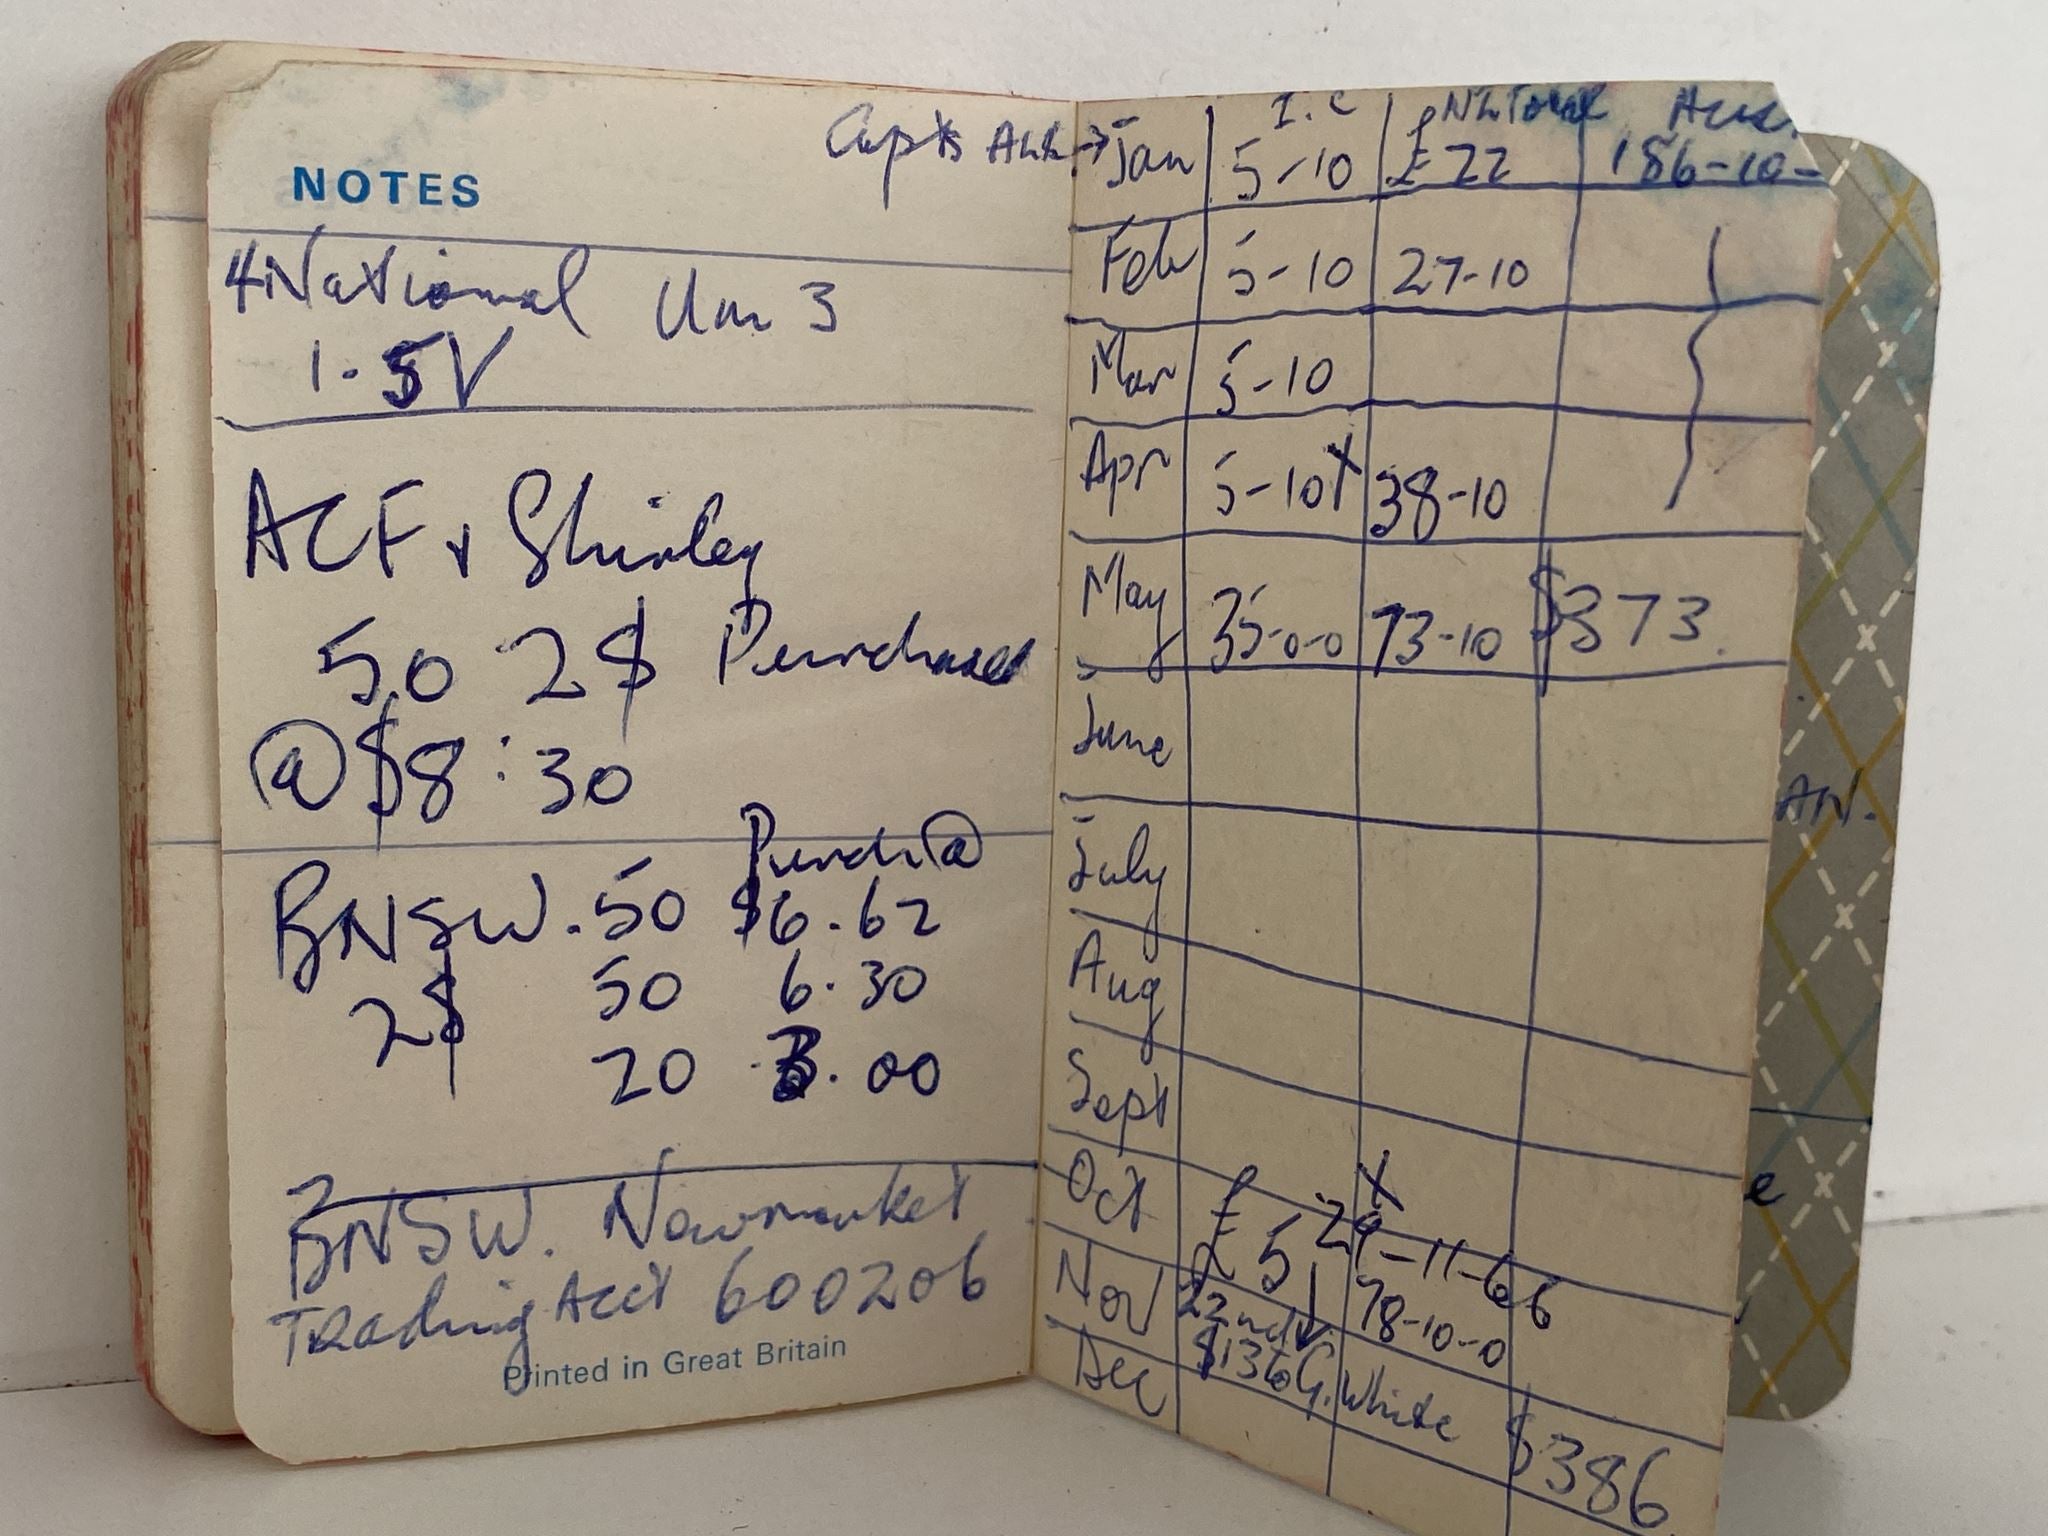 NOTES
4 National Um 3
1.5V
ACF & Shirley
50 2$ Purchased
@ $8:30
Purch @
BNSW. 50 $6.62
2$ 50 6.30
20 .00
BNSW. Newmarket
Trading Acct 600206
Printed in Great Britain
I.C £ NZ Total Aus.
Jan 5-10 £22 186-10-
Feb 5-10 27-10
Mar 5-10
Apr 5-10 X 38-10
May 35-0-0 73-10 $373.
June
July
Aug
Sept
Oct £5 X 29-11-66
Nov 22nd 78-10-0
$136 G. White
Dec $386
AN.
e